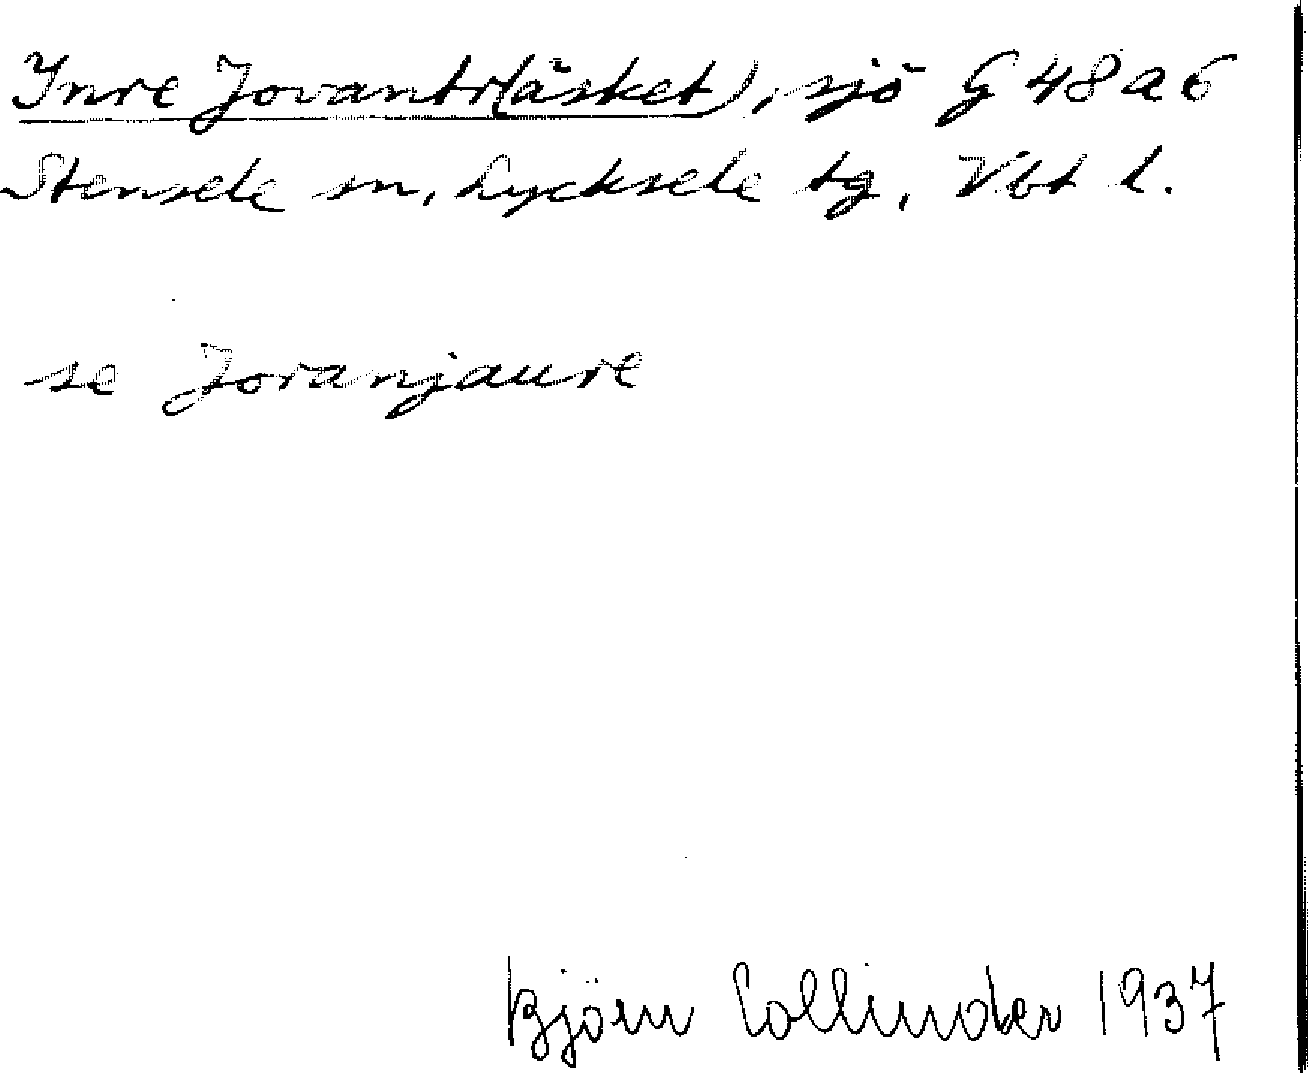 Inre Jovantr(äsket), sjö G 48 a 6
Stensele sn, Lycksele tg, Vbt l.
se Joranjaure
Björn Collinder 1937